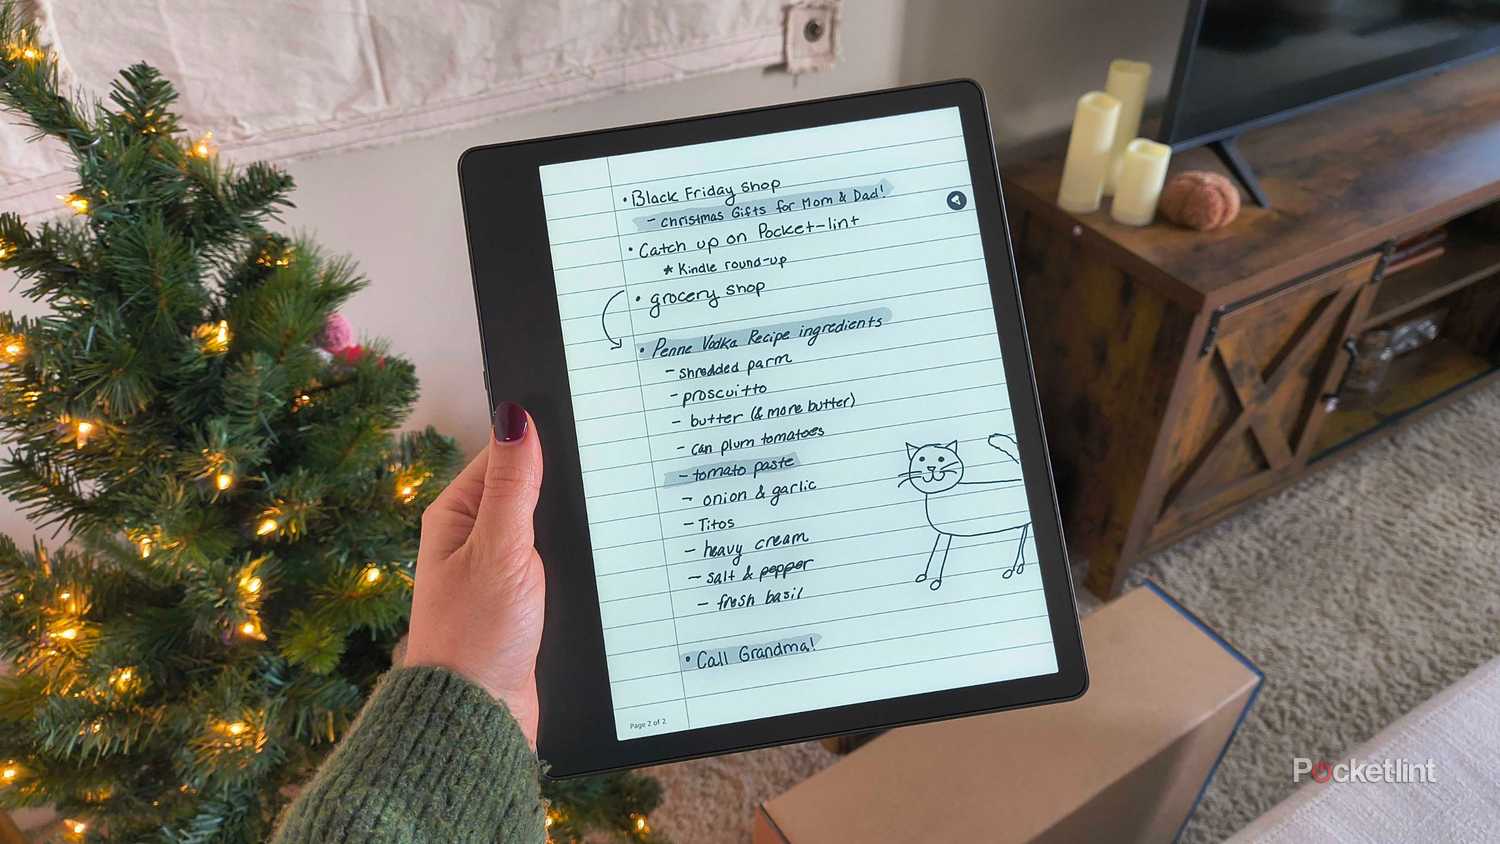 • Black Friday shop
- christmas Gifts for Mom & Dad!
• Catch up on Pocket-lint
* Kindle round-up
• grocery shop
• Penne Vodka Recipe ingredients
- shredded parm
- proscuitto
- butter (& more butter)
- can plum tomatoes
- tomato paste
- onion & garlic
- Titos
- heavy cream
- salt & pepper
- fresh basil
• Call Grandma!
Page 2 of 2
Pocketlint